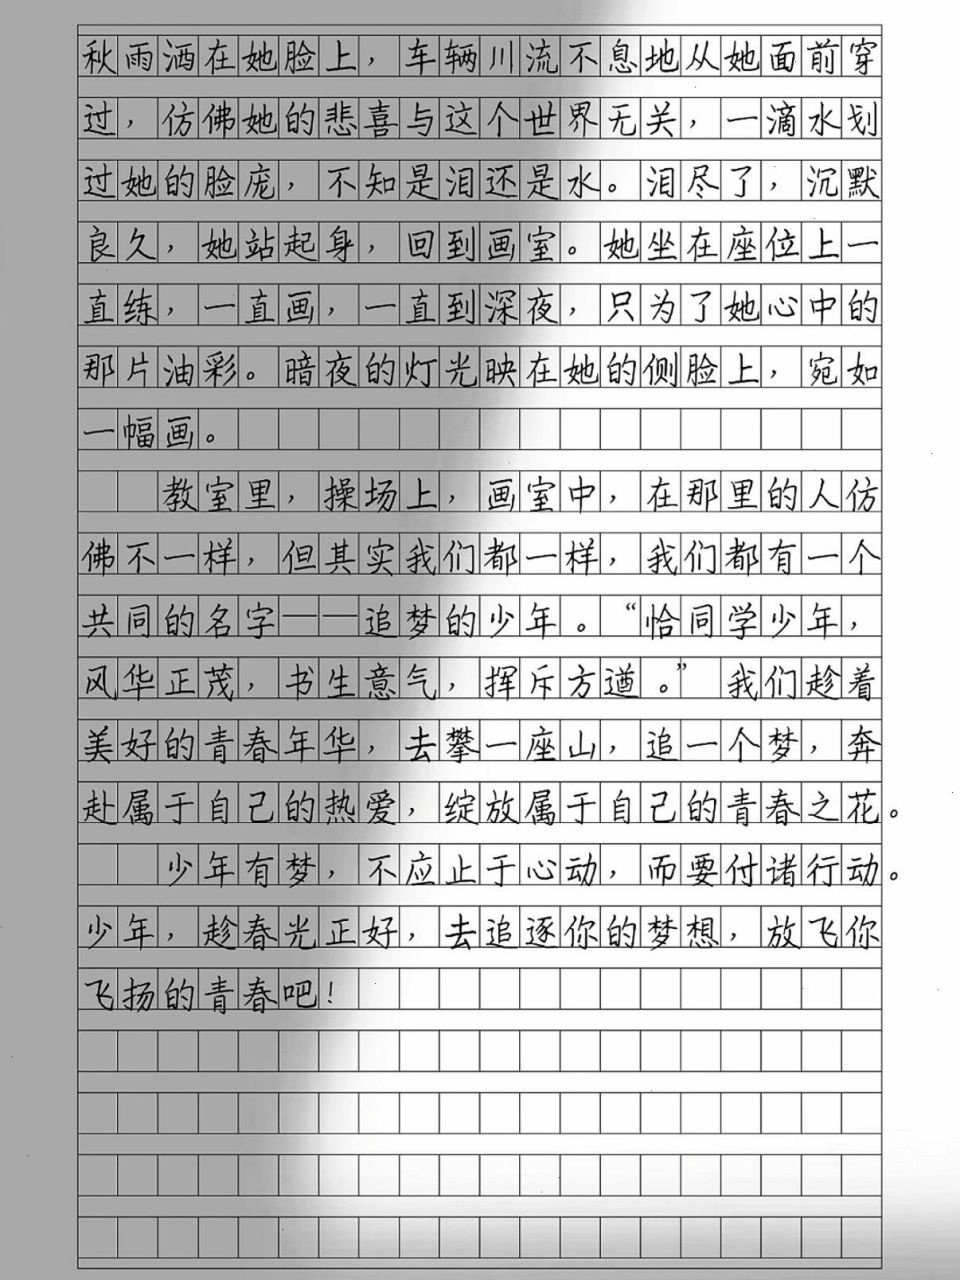 秋雨洒在她脸上，车辆川流不息地从她面前穿
过，仿佛她的悲喜与这个世界无关，一滴水划
过她的脸庞，不知是泪还是水。泪尽了，沉默
良久，她站起身，回到画室。她坐在座位上一
直练，一直画，一直到深夜，只为了她心中的
那片油彩。暗夜的灯光映在她的侧脸上，宛如
一幅画。
教室里，操场上，画室中，在那里的人仿
佛不一样，但其实我们都一样，我们都有一个
共同的名字——追梦的少年。“恰同学少年，
风华正茂，书生意气，挥斥方遒。”我们趁着
美好的青春年华，去攀一座山，追一个梦，奔
赴属于自己的热爱，绽放属于自己的青春之花。
少年有梦，不应止于心动，而要付诸行动。
少年，趁春光正好，去追逐你的梦想，放飞你
飞扬的青春吧！